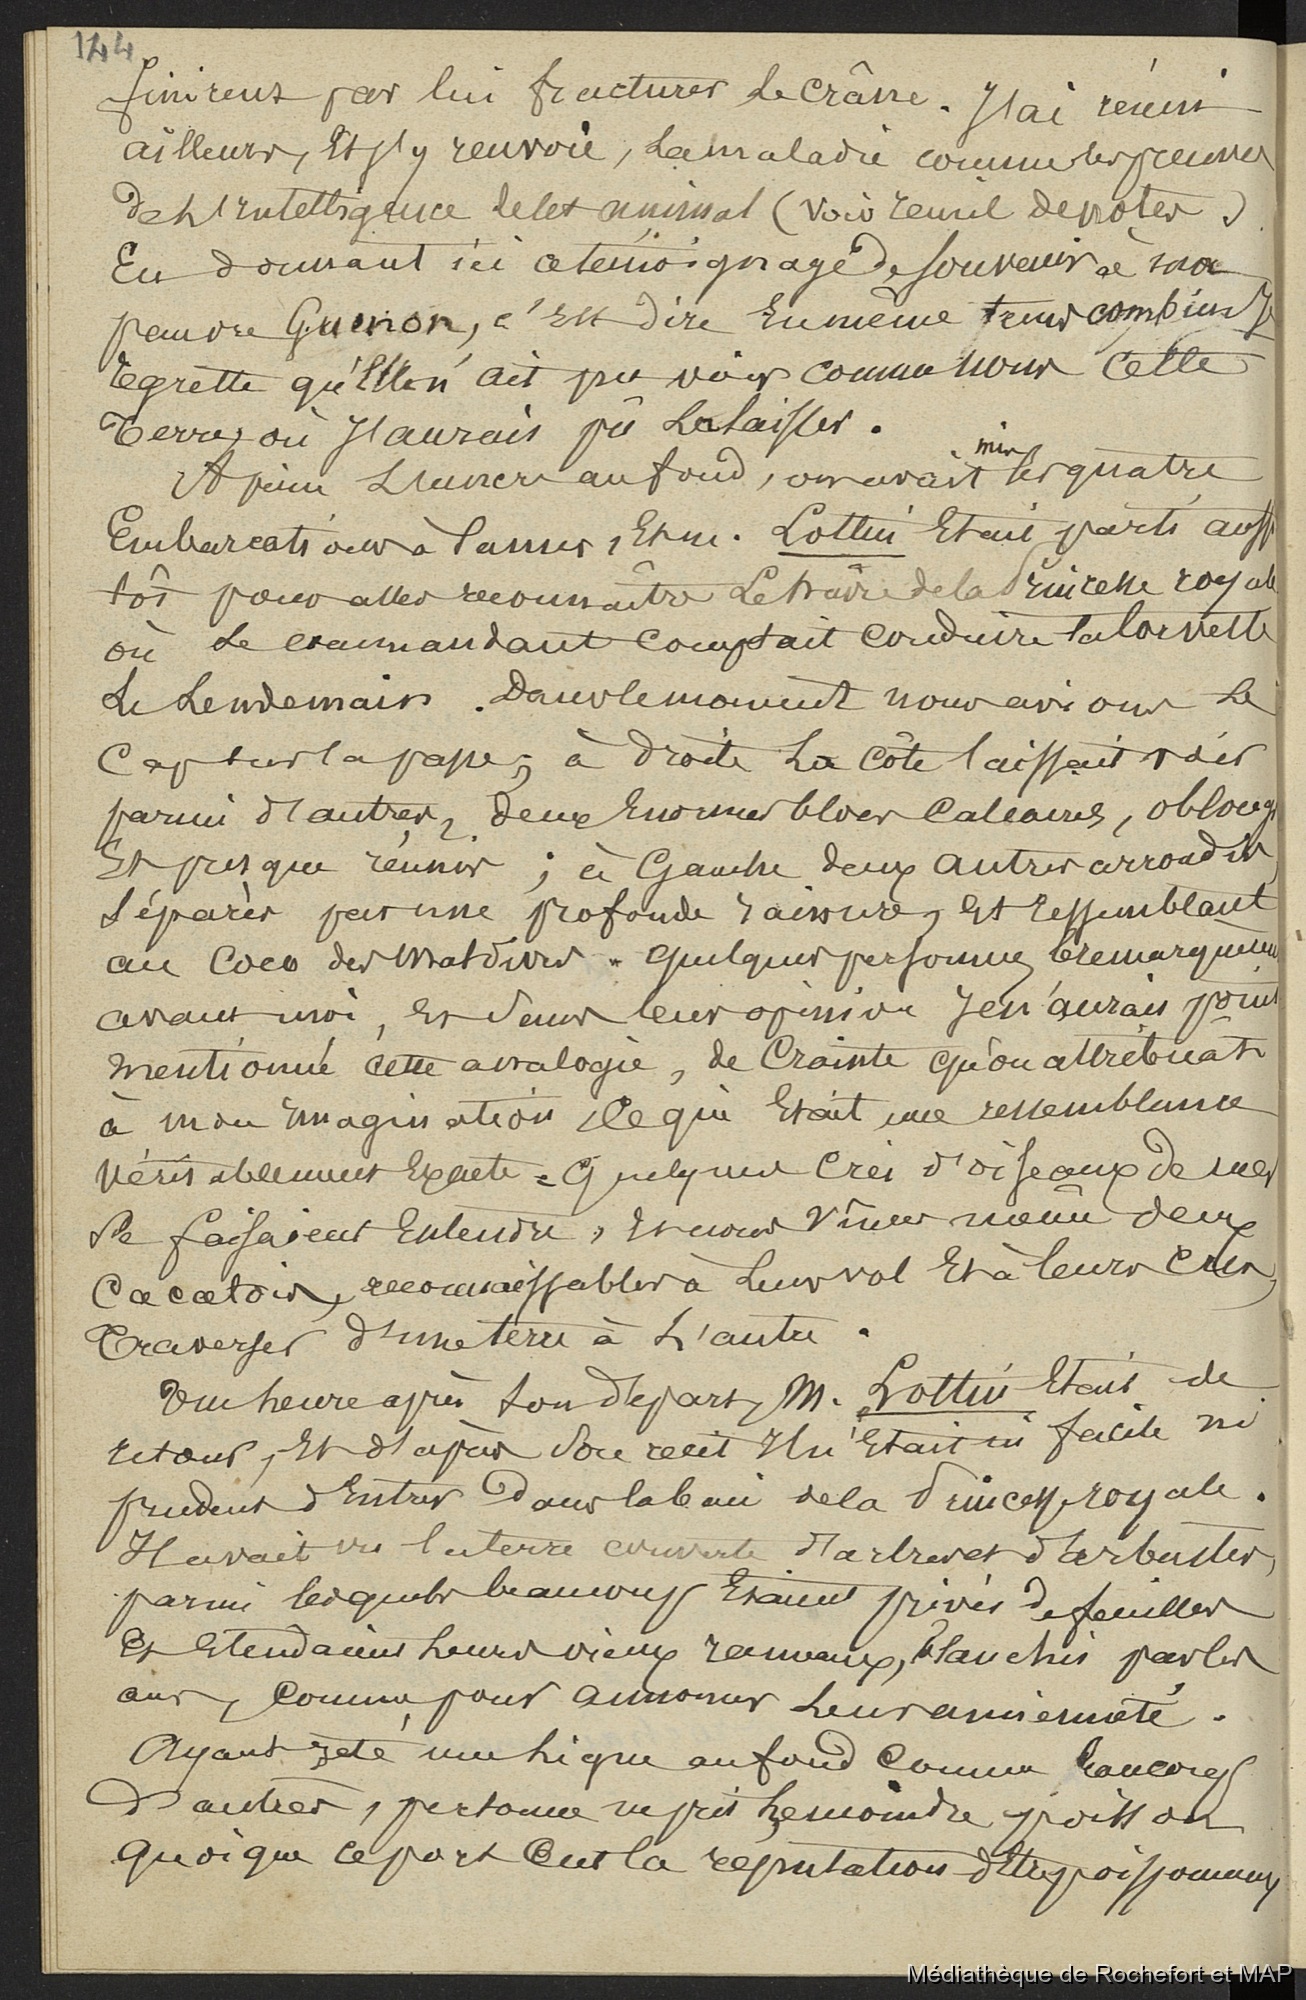 144
finirent par lui fracturer le crâne. J'ai réuni
ailleurs, et j'y renvoie, la maladie comme les preuves
de l'intelligence de cet animal (voir recueil de notes.)
En donnant ici ce témoignage de souvenir à ma
pauvre Guenon, c'est dire en même tems combien je
regrette qu'elle n'ait pu voir comme nous cette
terre, où j'aurais pû la laisser.
A peine l'ancre au fond, on avait mis les quatre
embarcations à la mer, et m. Lottin était parti aussi
tôt pour aller reconnaître le havre de la Princesse royale
où le commandant comptait conduire la Corvette
le lendemain. Dans le moment nous avions le
cap sur la passe; à droite la côte laissait voir
parmi d'autres, deux énormes blocs calcaires, oblongs
et presque réunis; à Gauche deux autres arrondis,
séparés par une profonde rainure, et ressemblant
au Coco des Maldives. quelques personnes le remarquèrent
avant moi, et sans leur opinion je n'aurais point
mentionné cette analogie, de crainte qu'on attribuât
à mon imagination ce qui était une ressemblance
véritablement exacte. Quelques cris d'oiseaux de mer
se faisaient entendre, et nous vîmes même deux
Cacatois, reconnaissables à leur vol et à leurs cris,
traverser d'une terre à l'autre.
Une heure après son départ, M. Lottin était de
retour, et d'après son récit il n'était ni facile ni
prudent d'entrer dans la baie de la Princesse royale.
Il avait vu la terre couverte d'arbres et d'arbustes,
parmi lesquels beaucoup étaient privés de feuilles
et étendaient leurs vieux rameaux, blanchis par les
ans, comme pour annoncer leur ancienneté.
Ayant jeté une ligne au fond comme beaucoup
d'autres, personne ne prit le moindre poisson
quoique ce port eut la réputation d'être poissonneux
Médiathèque de Rochefort et MAP